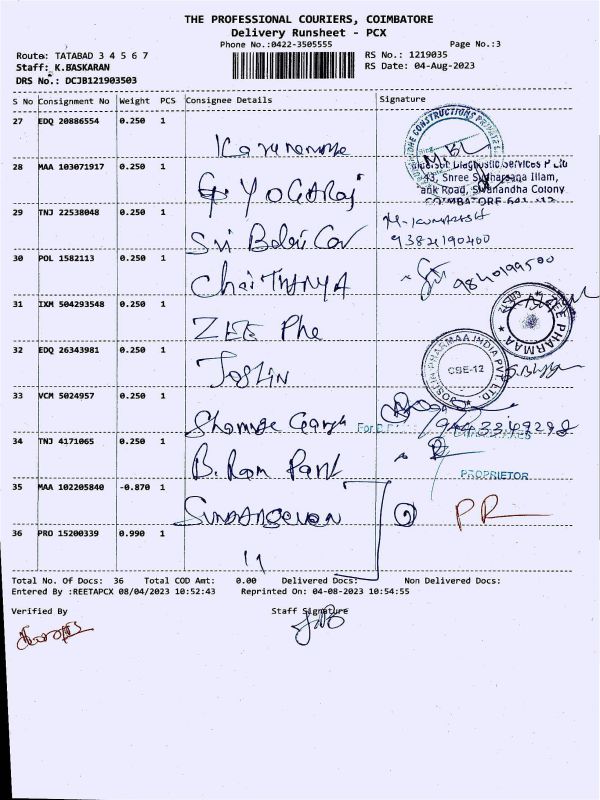 THE PROFESSIONAL COURIERS, COIMBATORE
Delivery Runsheet - PCX
Phone No.:0422-3505555 Page No.:3
Route: TATABAD 3 4 5 6 7 RS No.: 1219035
Staff: K.BASKARAN RS Date: 04-Aug-2023
DRS No.: DCJB121903503
S No Consignment No Weight PCS Consignee Details Signature
27 EDQ 20886554 0.250 1
28 MAA 103071917 0.250 1 YOGARaj
Diagnostic Services P Ltd
43, Shree Illam,
Road, Sivananda Colony
COIMBATORE
29 TNJ 22538048 0.250 1 Sri Balaji Cor
9382190400
30 POL 1582113 0.250 1 ChaiTHANYA 9840199500
31 IXM 504293548 0.250 1 ZEE Pha
ZEE PHARMAA
32 EDQ 26343981 0.250 1 JOSLIN
PHARMAA INDIA PVT LTD.
CBE-12
33 VCM 5024957 0.250 1 Shamuge Gangh For
9443349298
34 TNJ 4171065 0.250 1 B. Ram Pant
PROPRIETOR
35 MAA 102205840 -0.870 1 PR
36 PRO 15200339 0.990 1 11
Total No. Of Docs: 36 Total COD Amt: 0.00 Delivered Docs: Non Delivered Docs:
Entered By :REETAPCX 08/04/2023 10:52:43 Reprinted On: 04-08-2023 10:54:55
Verified By Staff Signature